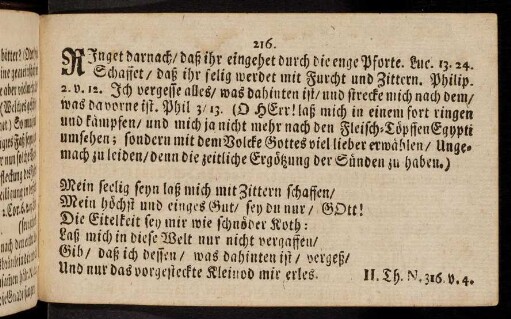 216.
RInget darnach/ daß ihr eingehet durch die enge Pforte. Luc. 13. 24.
Schaffet/ daß ihr selig werdet mit Furcht und Zittern. Philip.
2. v. 12. Ich vergesse alles/ was dahinten ist/ und strecke mich nach dem/
was davorne ist. Phil 3/ 13. (O HErr! laß mich in einem fort ringen
und kämpfen/ und mich ja nicht mehr nach den Fleisch-Töpffen Egypti
umsehen; sondern mit dem Volcke Gottes viel lieber erwählen/ Unge-
mach zu leiden/ denn die zeitliche Ergötzung der Sünden zu haben.)
Mein seelig seyn laß mich mit Zittern schaffen/
Mein höchst und einges Gut/ sey du nur/ GOtt!
Die Eitelkeit sey mir wie schnöder Koth:
Laß mich in diese Welt nur nicht vergaffen/
Gib/ daß ich dessen/ was dahinten ist/ vergeß/
Und nur das vorgesteckte Kleinod mir erles. II. Th. N. 316. v. 4.